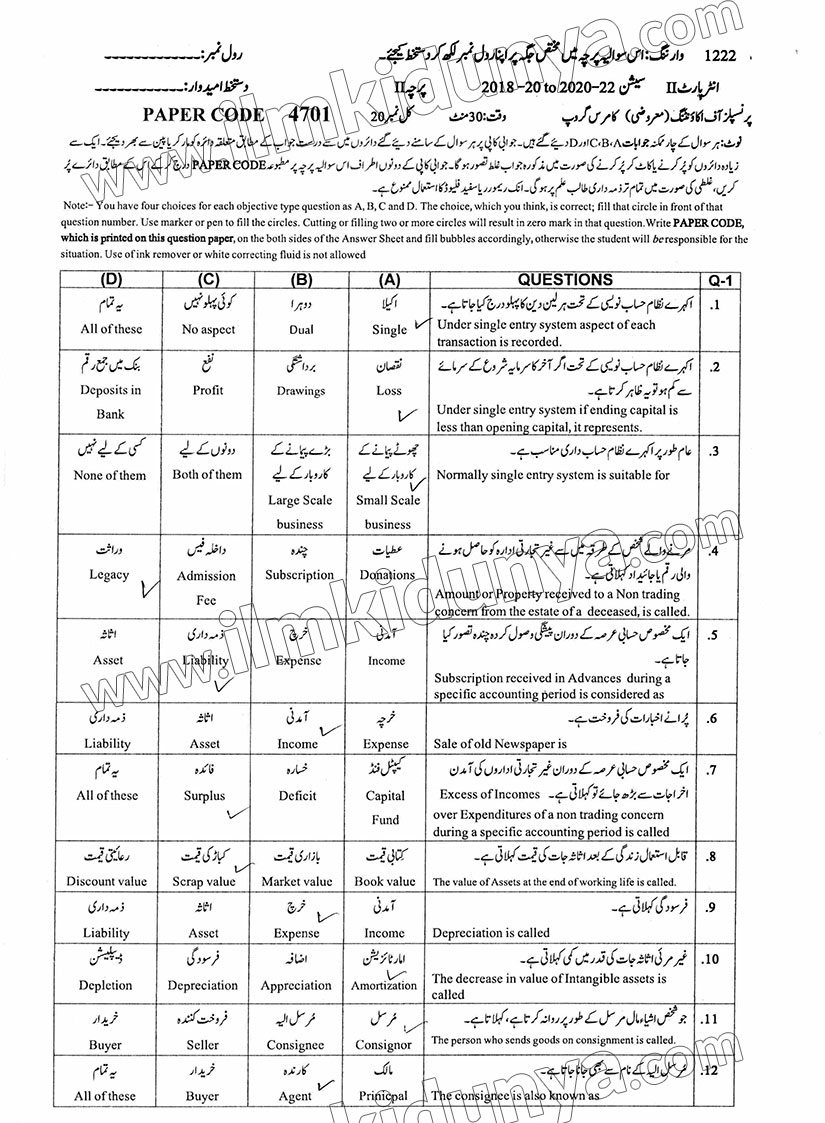 1222 وارننگ: اس سوالیہ پرچہ میں مختص جگہ پر اپنا رول نمبر لکھ کر دستخط کیجئے۔ رول نمبر: ---
انٹر پارٹ II سیشن 2018-20 to 2020-22 پرچہ II دستخط امیدوار: ---
پرنسپلز آف اکاؤنٹنگ (معروضی) کامرس گروپ وقت: 30 منٹ کل نمبر 20 PAPER CODE 4701
نوٹ: ہر سوال کے چار ممکنہ جوابات C،B،A اور D دیئے گئے ہیں۔ جوابی کاپی پر ہر سوال کے سامنے دیئے گئے دائروں میں سے درست جواب کے مطابق متعلقہ دائرہ کو مارکر یا پین سے بھر دیجئے۔ ایک سے
زیادہ دائروں کو پُر کرنے یا کاٹ کر پُر کرنے کی صورت میں مذکورہ جواب غلط تصور ہوگا۔ جوابی کاپی کے دونوں اطراف اس سوالیہ پرچہ پر مطبوعہ PAPER CODE درج کر کے اس کے مطابق دائرے پُر
کریں، غلطی کی صورت میں تمام تر ذمہ داری طالب علم پر ہوگی۔ انک ریموور یا سفید فلیوڈ کا استعمال ممنوع ہے۔
Note:- You have four choices for each objective type question as A, B, C and D. The choice, which you think, is correct; fill that circle in front of that
question number. Use marker or pen to fill the circles. Cutting or filling two or more circles will result in zero mark in that question. Write PAPER CODE,
which is printed on this question paper, on the both sides of the Answer Sheet and fill bubbles accordingly, otherwise the student will be responsible for the
situation. Use of ink remover or white correcting fluid is not allowed
(D) (C) (B) (A) QUESTIONS Q-1
یہ تمام کوئی پہلو نہیں دوہرا اکیلا اکہرے نظام حساب نویسی کے تحت ہر لین دین کا پہلو درج کیا جاتا ہے۔ .1
All of these No aspect Dual Single Under single entry system aspect of each
transaction is recorded.
بنک میں جمع رقم نفع برداشتگی نقصان اکہرے نظام حساب نویسی کے تحت اگر آخر کا سرمایہ شروع کے سرمائے .2
سے کم ہو تو یہ ظاہر کرتا ہے۔
Deposits in Bank Profit Drawings Loss Under single entry system if ending capital is
less than opening capital, it represents.
کسی کے لیے نہیں دونوں کے لیے بڑے پیمانے کے کاروبار کے لیے چھوٹے پیمانے کے کاروبار کے لیے عام طور پر اکہرے نظام حساب داری مناسب ہے۔ .3
None of them Both of them Large Scale business Small Scale business Normally single entry system is suitable for
وراثت داخلہ فیس چندہ عطیات مرنے والے شخص کے طرفہ میں سے غیر تجارتی ادارہ کو حاصل ہونے .4
والی رقم یا جائیداد کہلاتی ہے۔
Legacy Admission Fee Subscription Donations Amount or Property received to a Non trading
concern from the estate of a deceased, is called.
اثاثہ ذمہ داری خرچ آمدنی ایک مخصوص حسابی عرصہ کے دوران پیشگی وصول کردہ چندہ تصور کیا .5
جاتا ہے۔
Asset Liability Expense Income Subscription received in Advances during a
specific accounting period is considered as
ذمہ داری اثاثہ آمدنی خرچہ پُرانے اخبارات کی فروخت ہے۔ .6
Liability Asset Income Expense Sale of old Newspaper is
یہ تمام فائدہ خسارہ کیپٹل فنڈ ایک مخصوص حسابی عرصہ کے دوران غیر تجارتی اداروں کی آمدن .7
اخراجات سے بڑھ جائے تو کہلاتی ہے۔ Excess of Incomes
All of these Surplus Deficit Capital Fund over Expenditures of a non trading concern
during a specific accounting period is called
رعائیتی قیمت کباڑ کی قیمت بازاری قیمت کتابی قیمت قابل استعمال زندگی کے بعد اثاثہ جات کی قیمت کہلاتی ہے۔ .8
Discount value Scrap value Market value Book value The value of Assets at the end of working life is called.
ذمہ داری اثاثہ خرچ آمدنی فرسودگی کہلاتی ہے۔ .9
Liability Asset Expense Income Depreciation is called
ڈیپلیشن فرسودگی اضافہ امارٹائزیشن غیر مرئی اثاثہ جات کی قدر میں کمی کہلاتی ہے۔ .10
Depletion Depreciation Appreciation Amortization The decrease in value of Intangible assets is
called
خریدار فروخت کنندہ مُرسل الیہ مُرسل جو شخص اشیاء مال مرسل کے طور پر روانہ کرتا ہے، کہلاتا ہے۔ .11
Buyer Seller Consignee Consignor The person who sends goods on consignment is called.
یہ تمام خریدار کارندہ مالک مُرسل الیہ کے نام سے بھی جانا جاتا ہے۔ .12
All of these Buyer Agent Prinicpal The consignee is also known as
www.ilmkidunya.com
www.ilmkidunya.com
www.ilmkidunya.com